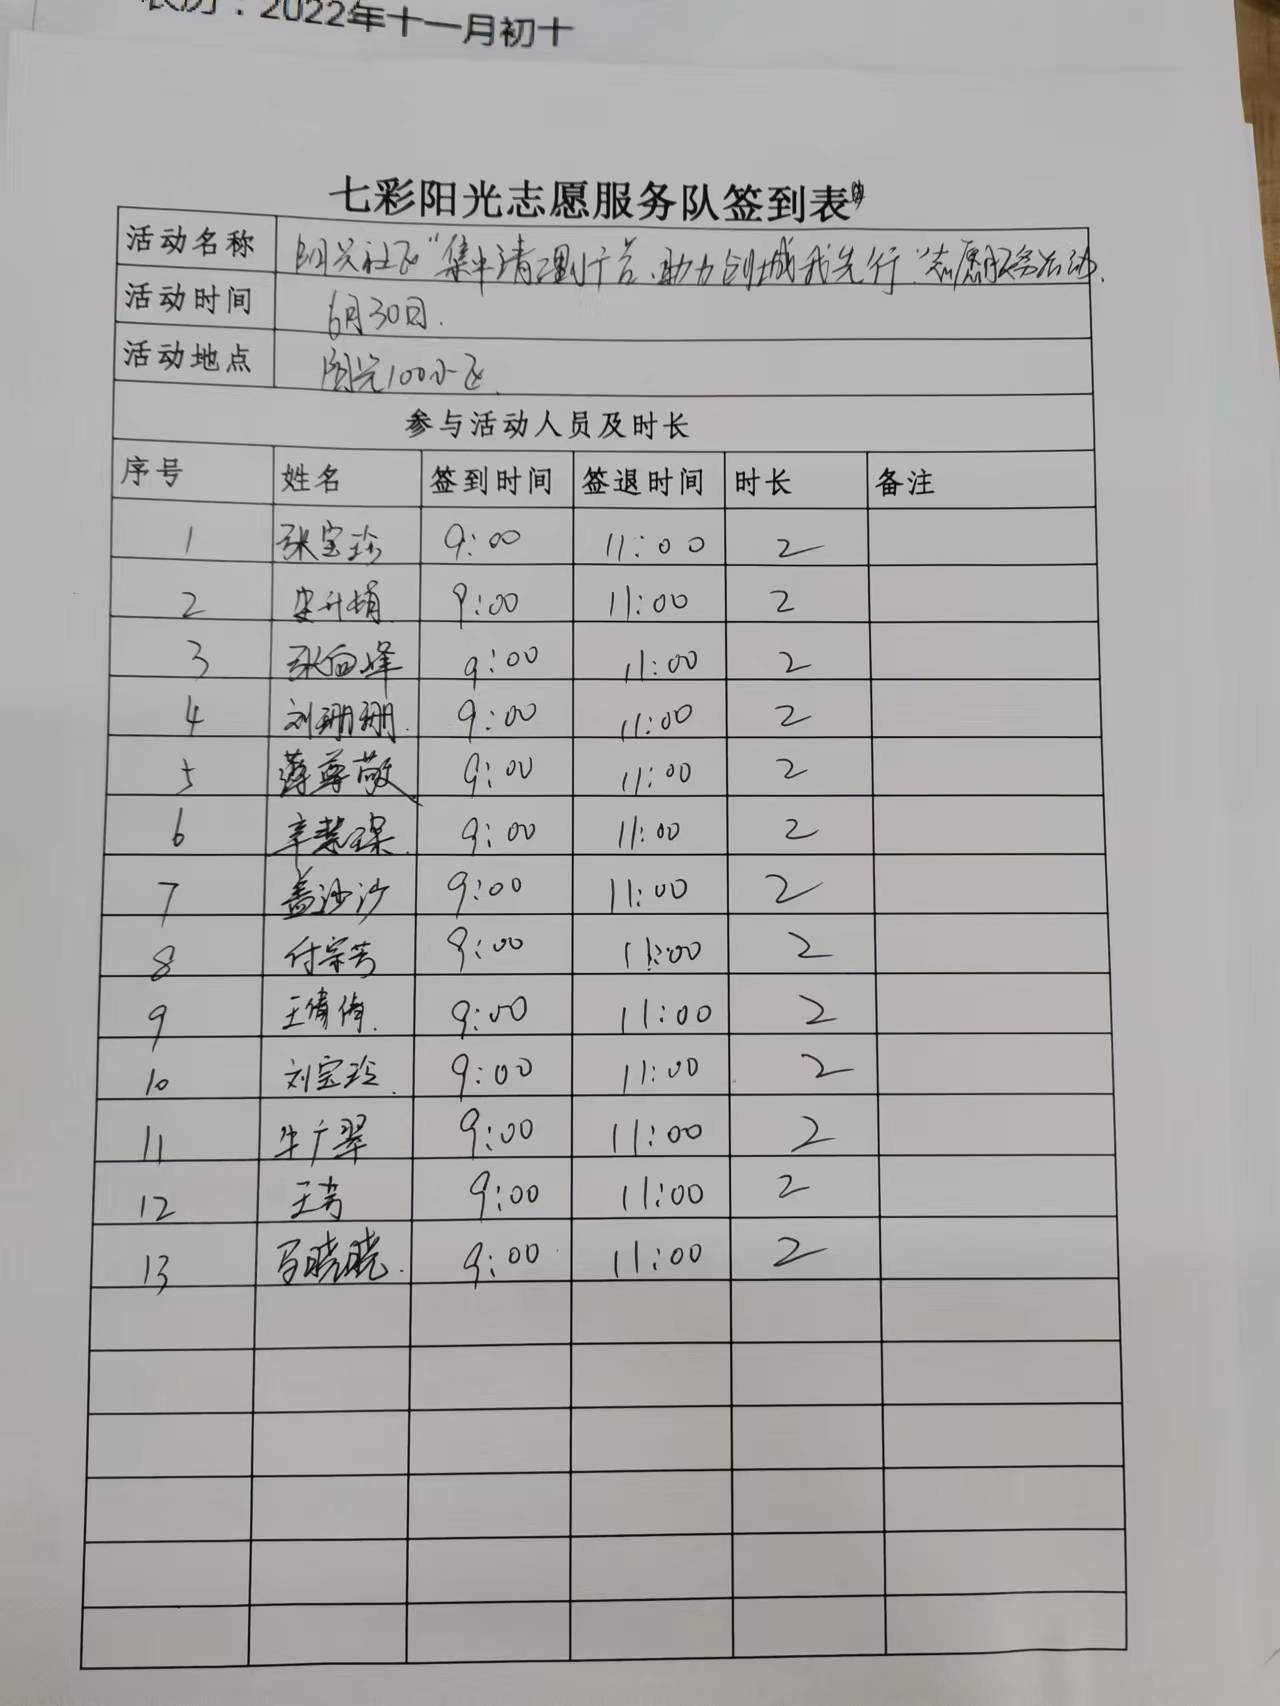 农历：2022年十一月初十
七彩阳光志愿服务队签到表
活动名称 阳光社区“集中清理小广告、助力创城我先行”志愿服务活动.
活动时间 6月30日.
活动地点 阳光100小区.
参与活动人员及时长
序号 姓名 签到时间 签退时间 时长 备注
1 张宝珍 9:00 11:00 2
2 9:00 11:00 2
3 张向峰 9:00 11:00 2
4 刘珊珊. 9:00 11:00 2
5 薄尊敬 9:00 11:00 2
6 辛慧琛. 9:00 11:00 2
7 盖沙沙 9:00 11:00 2
8 付宗芳 9:00 11:00 2
9 王倩倩. 9:00 11:00 2
10 刘宝玲. 9:00 11:00 2
11 牛广翠 9:00 11:00 2
12 王芳 9:00 11:00 2
13 马晓晓. 9:00 11:00 2